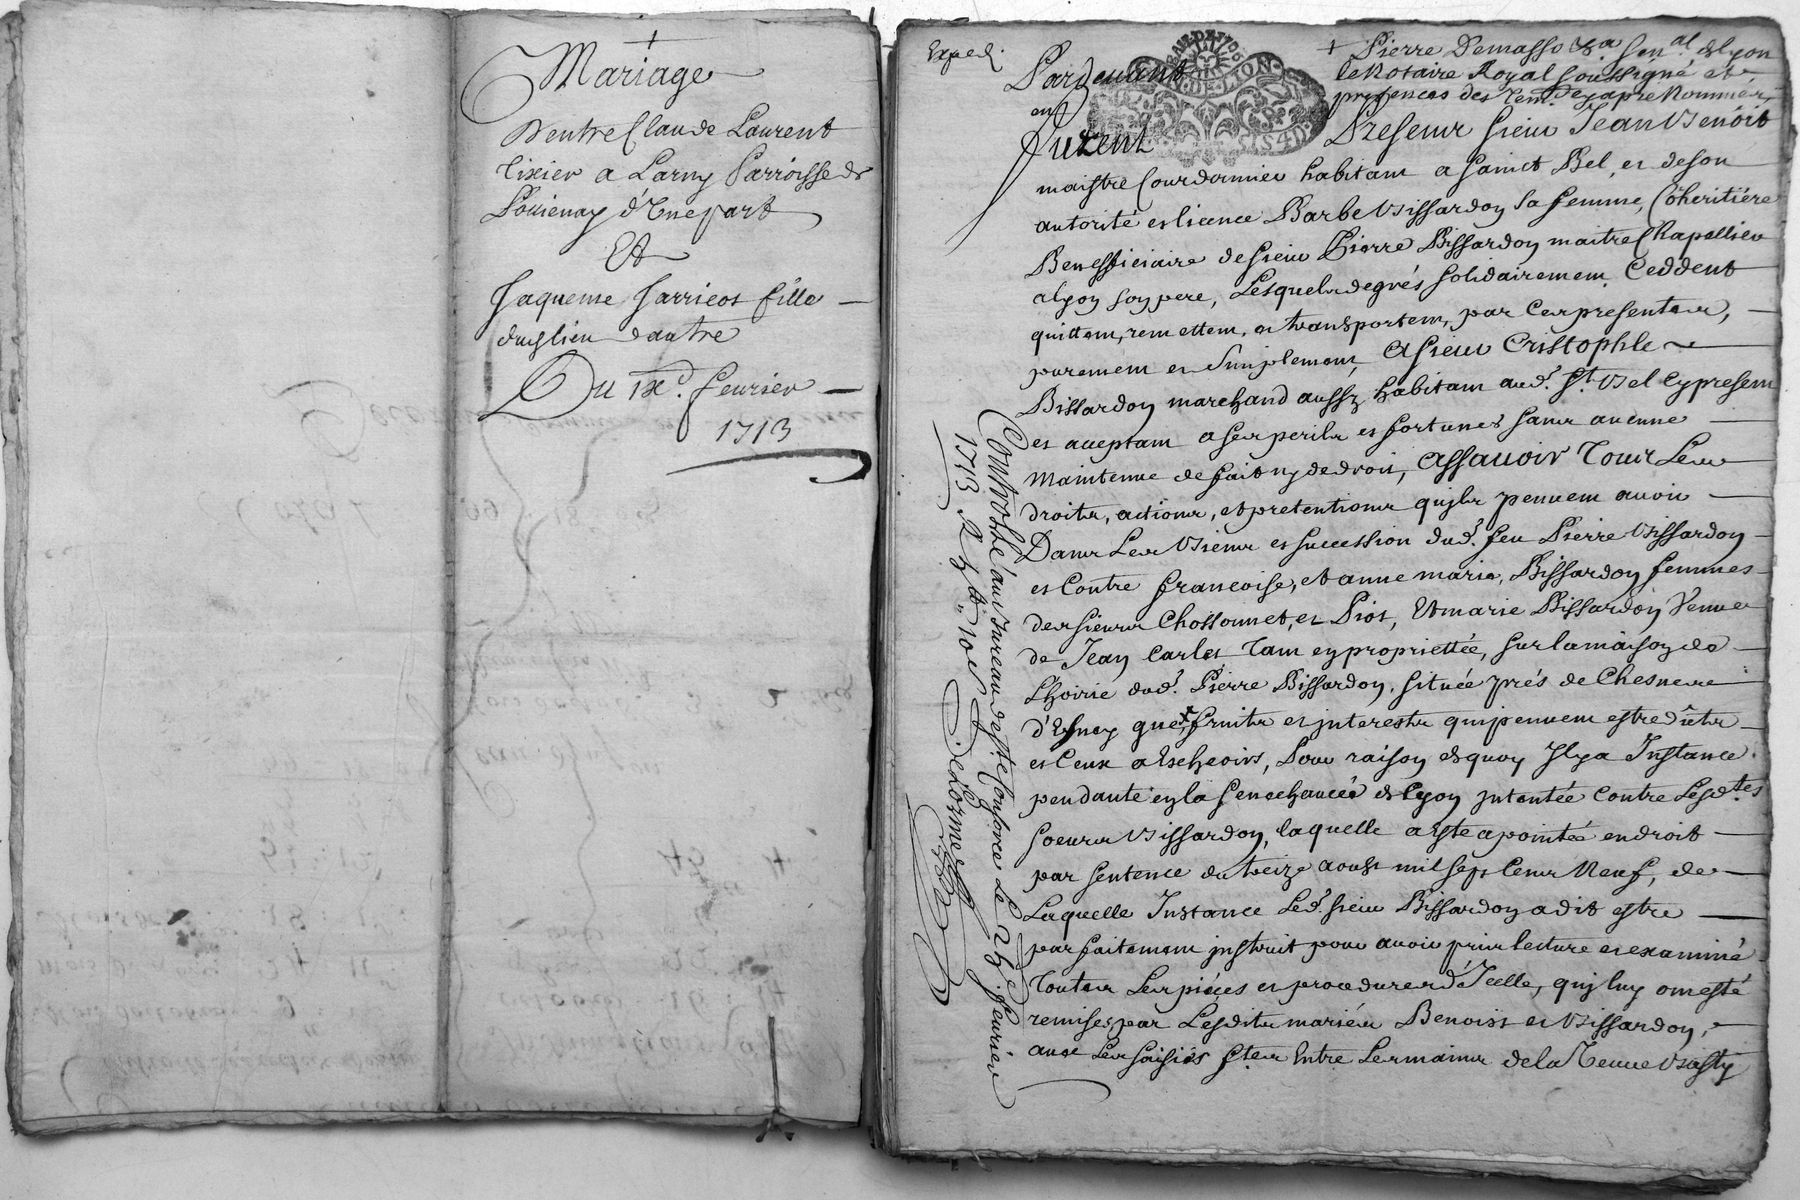 +
Mariage
D'entre Claude Laurent
Tixier a Larny Parroisse de
Pollienay d'Une part
Et
Jaqueme Jarricot fille
dud. lieu dautre
Du IXe. feurier
1713
Exped.
+ Pierre Demasso
Pardeuant le Notaire Royal soussigné et
en presences des Tem. cy apre Nommés,
furent Presens sieur Jean Benoit
maistre Courdonnier habitant a Sainct Bel, et de son
autorité et licence Barbe Bissardon sa femme, Coheritiére
Benefficiaire de sieur Pierre Bissardon maitre Chapellier
a Lyon son pere, Lesquels de grés solidairement Ceddent
quittent, remettent, et transportent, par Ces presentes,
purement et simplement, A sieur Cristophle
Bissardon marchand aussy habitant aud. St. Bel Cy present
et aceptant a ses perils et fortunes sans aucune
Maintenue de fait ny de droit, Assauoir Tous Les
droits, actions, et pretentions quils peuuent auoir
Dans Les Biens et succession dud. feu Pierre Bissardon
et Contre francoise, et anne marie, Bissardon femmes
des sieurs Chossonnet, et Piot, Et marie Bissardon Veuue
de Jean Carles Tant en proprietée, sur la maison de
L'hoirie dud. Pierre Bissardon, située prés de Chesne
d'Esnay que fruits et interests qui peuuent estre dûts
et Ceux a Escheoirs, Pour raison de quoy Il y a Instance
pendante en la senechaucée de Lyon intentée Contre Lesd.tes
soeurs Bissardon, laquelle a esté apointée en droit
par sentence du treize aoust mil sept Cens Neuf, de
Laquelle Instance Led. sieur Bissardon a dit estre
parfaitement instruit pour auoir pris lecture et examiné
Toutes Les piéces et procedures d'Icelle, qui luy ont esté
remises par Lesdits mariés Benoist et Bissardon,
auec Les saisies entre Les mains de la Veuue Basty
Controllé au Bureau de Ste. Conforce Le feurier
1713 R Delorme